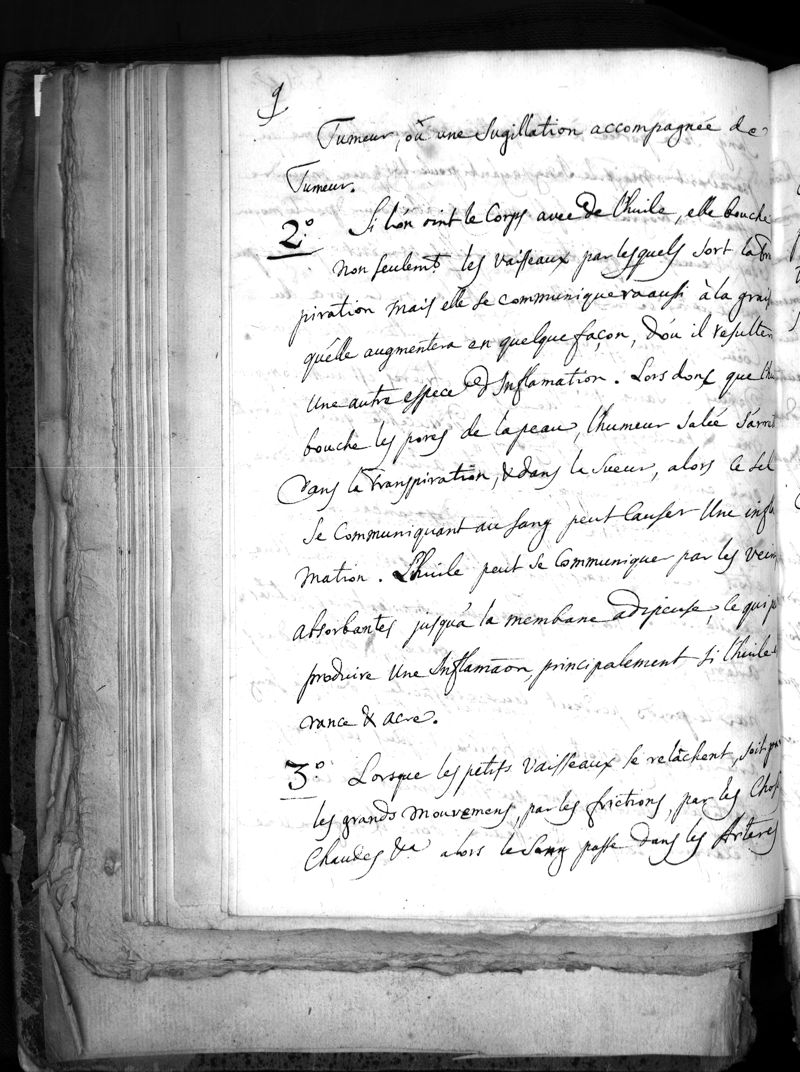 9
Tumeur, où une Sugillation accompagnée de
Tumeur.
2.° Si l'on oint le Corps avec de l'huile, elle bouche
non seulemt les vaisseaux par lesquels sort la tra
piration mais elle se communiquera aussi à la grais
qu'elle augmentera en quelque façon, d'où il resulter
une autre espece d'Inflamation. Lors donc que l'hu
bouche les pores de la peau, l'humeur salée s'arret
dans la transpiration, & dans la sueur, alors le sel
se Communiquant au sang peut causer une infla
mation. L'huile peut se Communiquer par les vein
absorbantes jusqu'à la membane adipeuse, ce qui p
produire une Inflamãon, principalement si l'huile
rance & acre.
3.° Lorsque les petits vaisseaux se relâchent, soit par
les grands mouvemens, par les frictions, par les Chos
Chaudes &a alors le Sang passe dans les Arteres